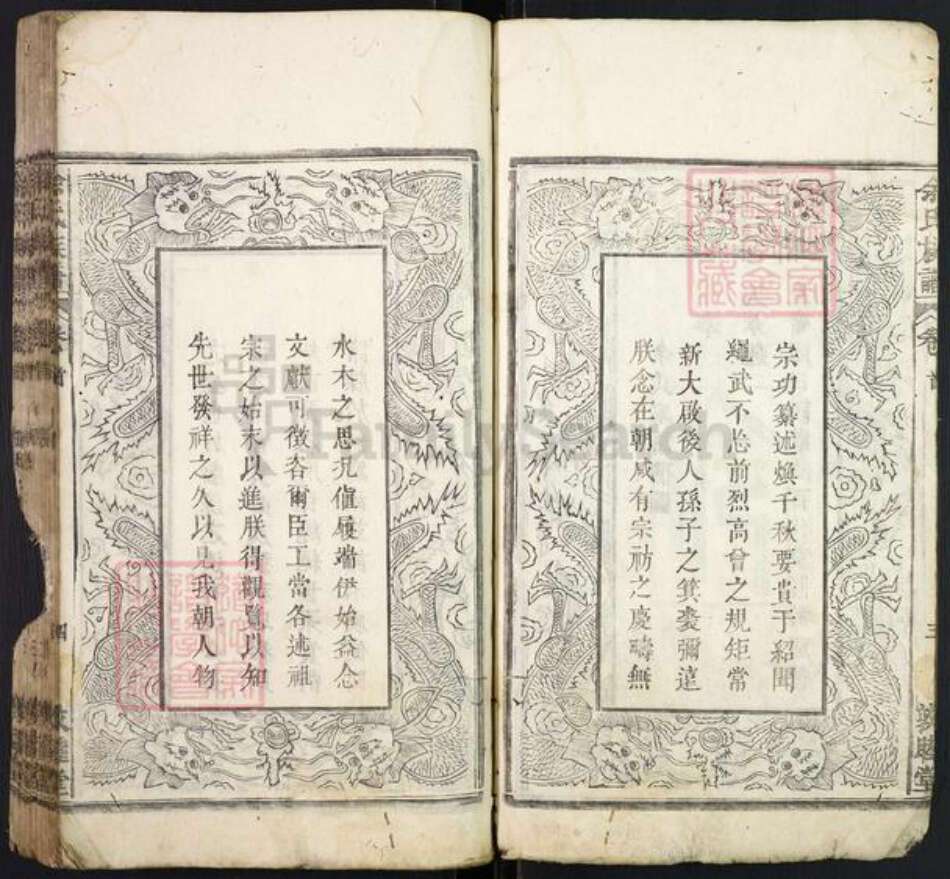 宗功纂述煥千秋要貴于紹聞
繩武不忘前烈高曾之規矩常
新大啟後人孫子之箕裘彌遠
朕念在朝咸有宗祊之慶疇無
水木之思茲値履端伊始益念
文獻可徵咨爾臣工當各述祖
宗之始末以進朕得觀覽以知
先世發祥之久以見我朝人物
氏族譜
卷首
三
卷首
四
敦睦堂
FamilySearch